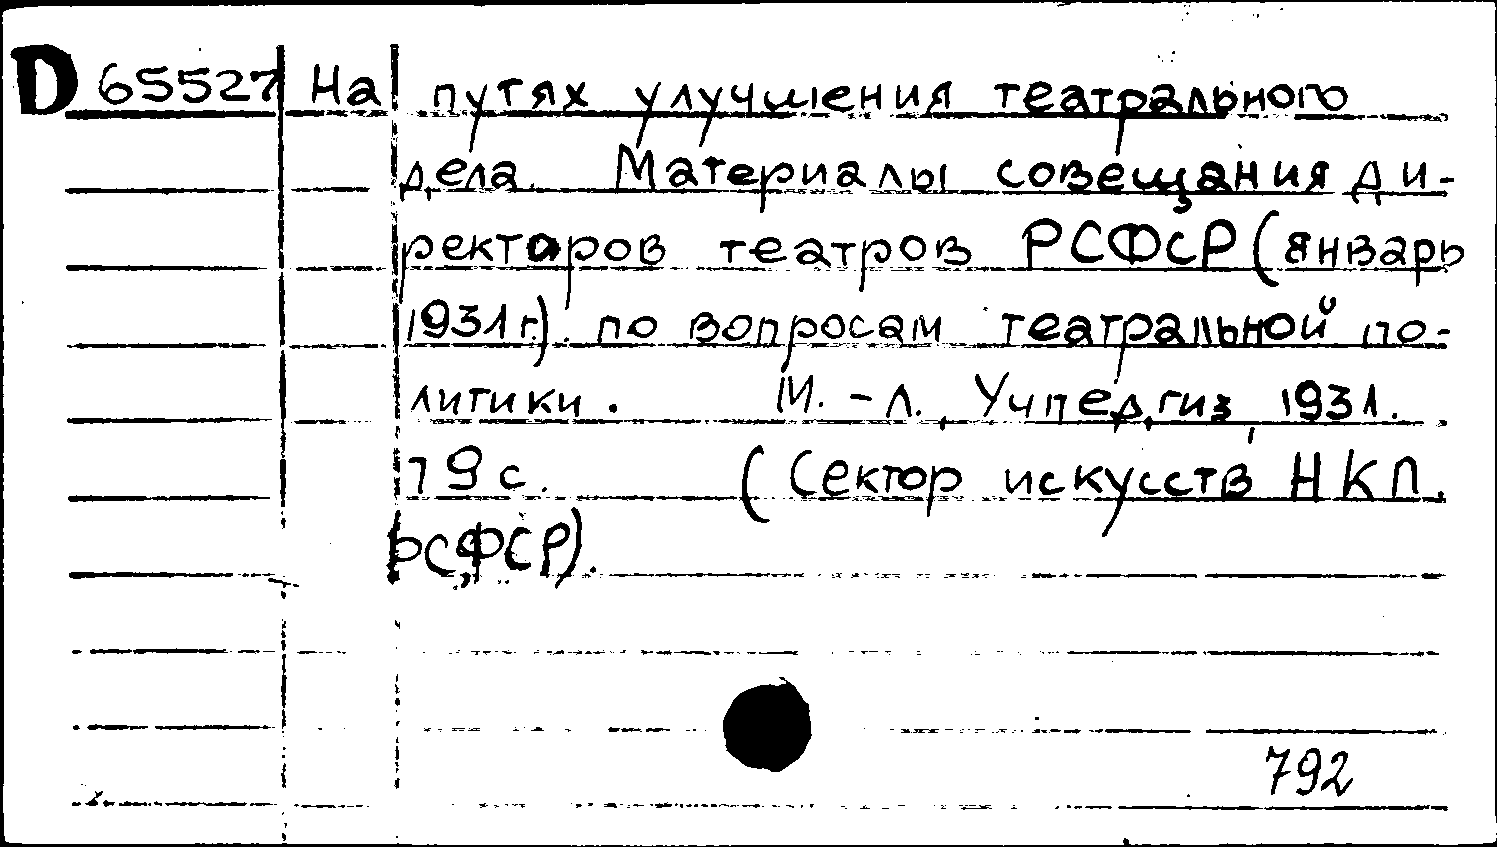 D 65527 На путях улучшения театрального
дела. Материалы совещания ди-
ректоров театров РСФСР (январь
1931 г.). по вопросам театральной по-
литики. М.-Л., Учпедгиз, 1931.
79 с. (Сектор искусств НКП.
РСФСР).
792